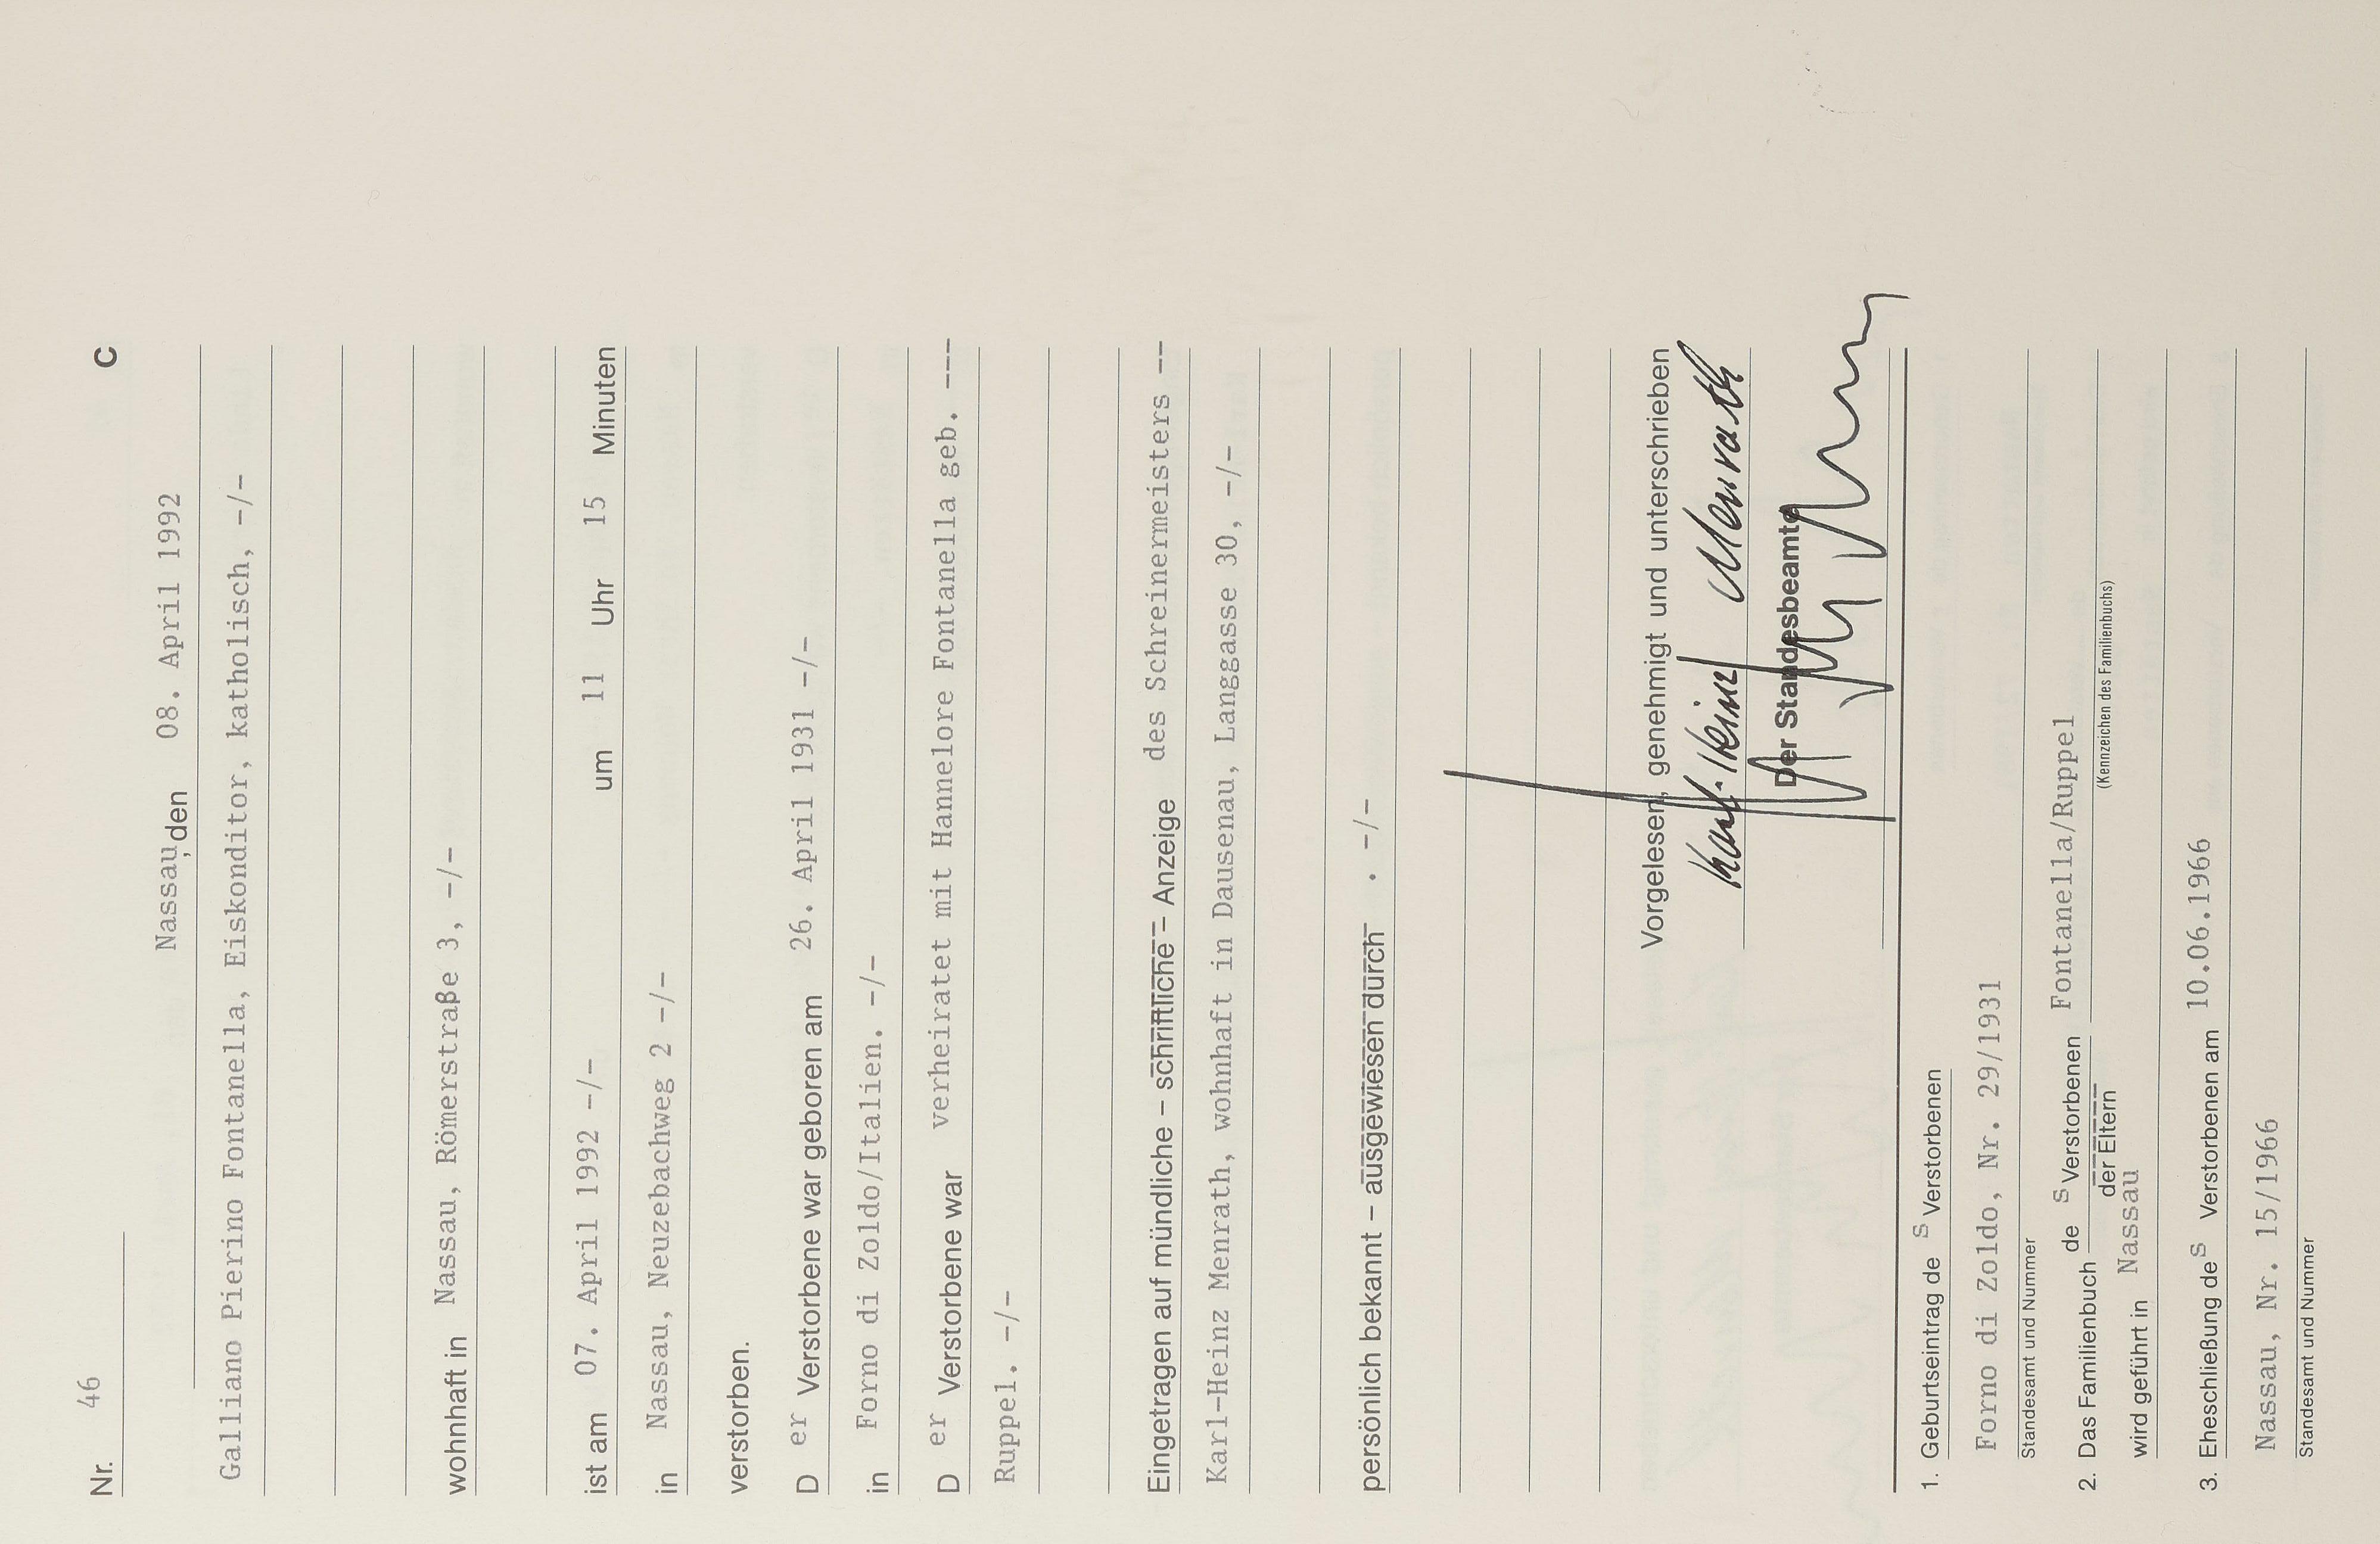 Nr. 46 C
Nassau, den 08. April 1992
Galliano Pierino Fontanella, Eiskonditor, katholisch, -/-
wohnhaft in Nassau, Römerstraße 3, -/-
ist am 07. April 1992 -/- um 11 Uhr 15 Minuten
in Nassau, Neuzebachweg 2 -/-
verstorben.
D er Verstorbene war geboren am 26. April 1931 -/-
in Forno di Zoldo/Italien. -/-
D er Verstorbene war verheiratet mit Hannelore Fontanella geb. ---
Ruppel. -/-
Eingetragen auf mündliche – schriftliche – Anzeige des Schreinermeisters --
Karl-Heinz Menrath, wohnhaft in Dausenau, Langgasse 30, -/-
persönlich bekannt – ausgewiesen durch . -/-
Vorgelesen, genehmigt und unterschrieben
Karl-Heinz Menrath
Der Standesbeamte
1. Geburtseintrag de s Verstorbenen
Forno di Zoldo, Nr. 29/1931
Standesamt und Nummer
2. Das Familienbuch de s Verstorbenen Fontanella/Ruppel
der Eltern (Kennzeichen des Familienbuchs)
wird geführt in Nassau
3. Eheschließung de s Verstorbenen am 10.06.1966
Nassau, Nr. 15/1966
Standesamt und Nummer